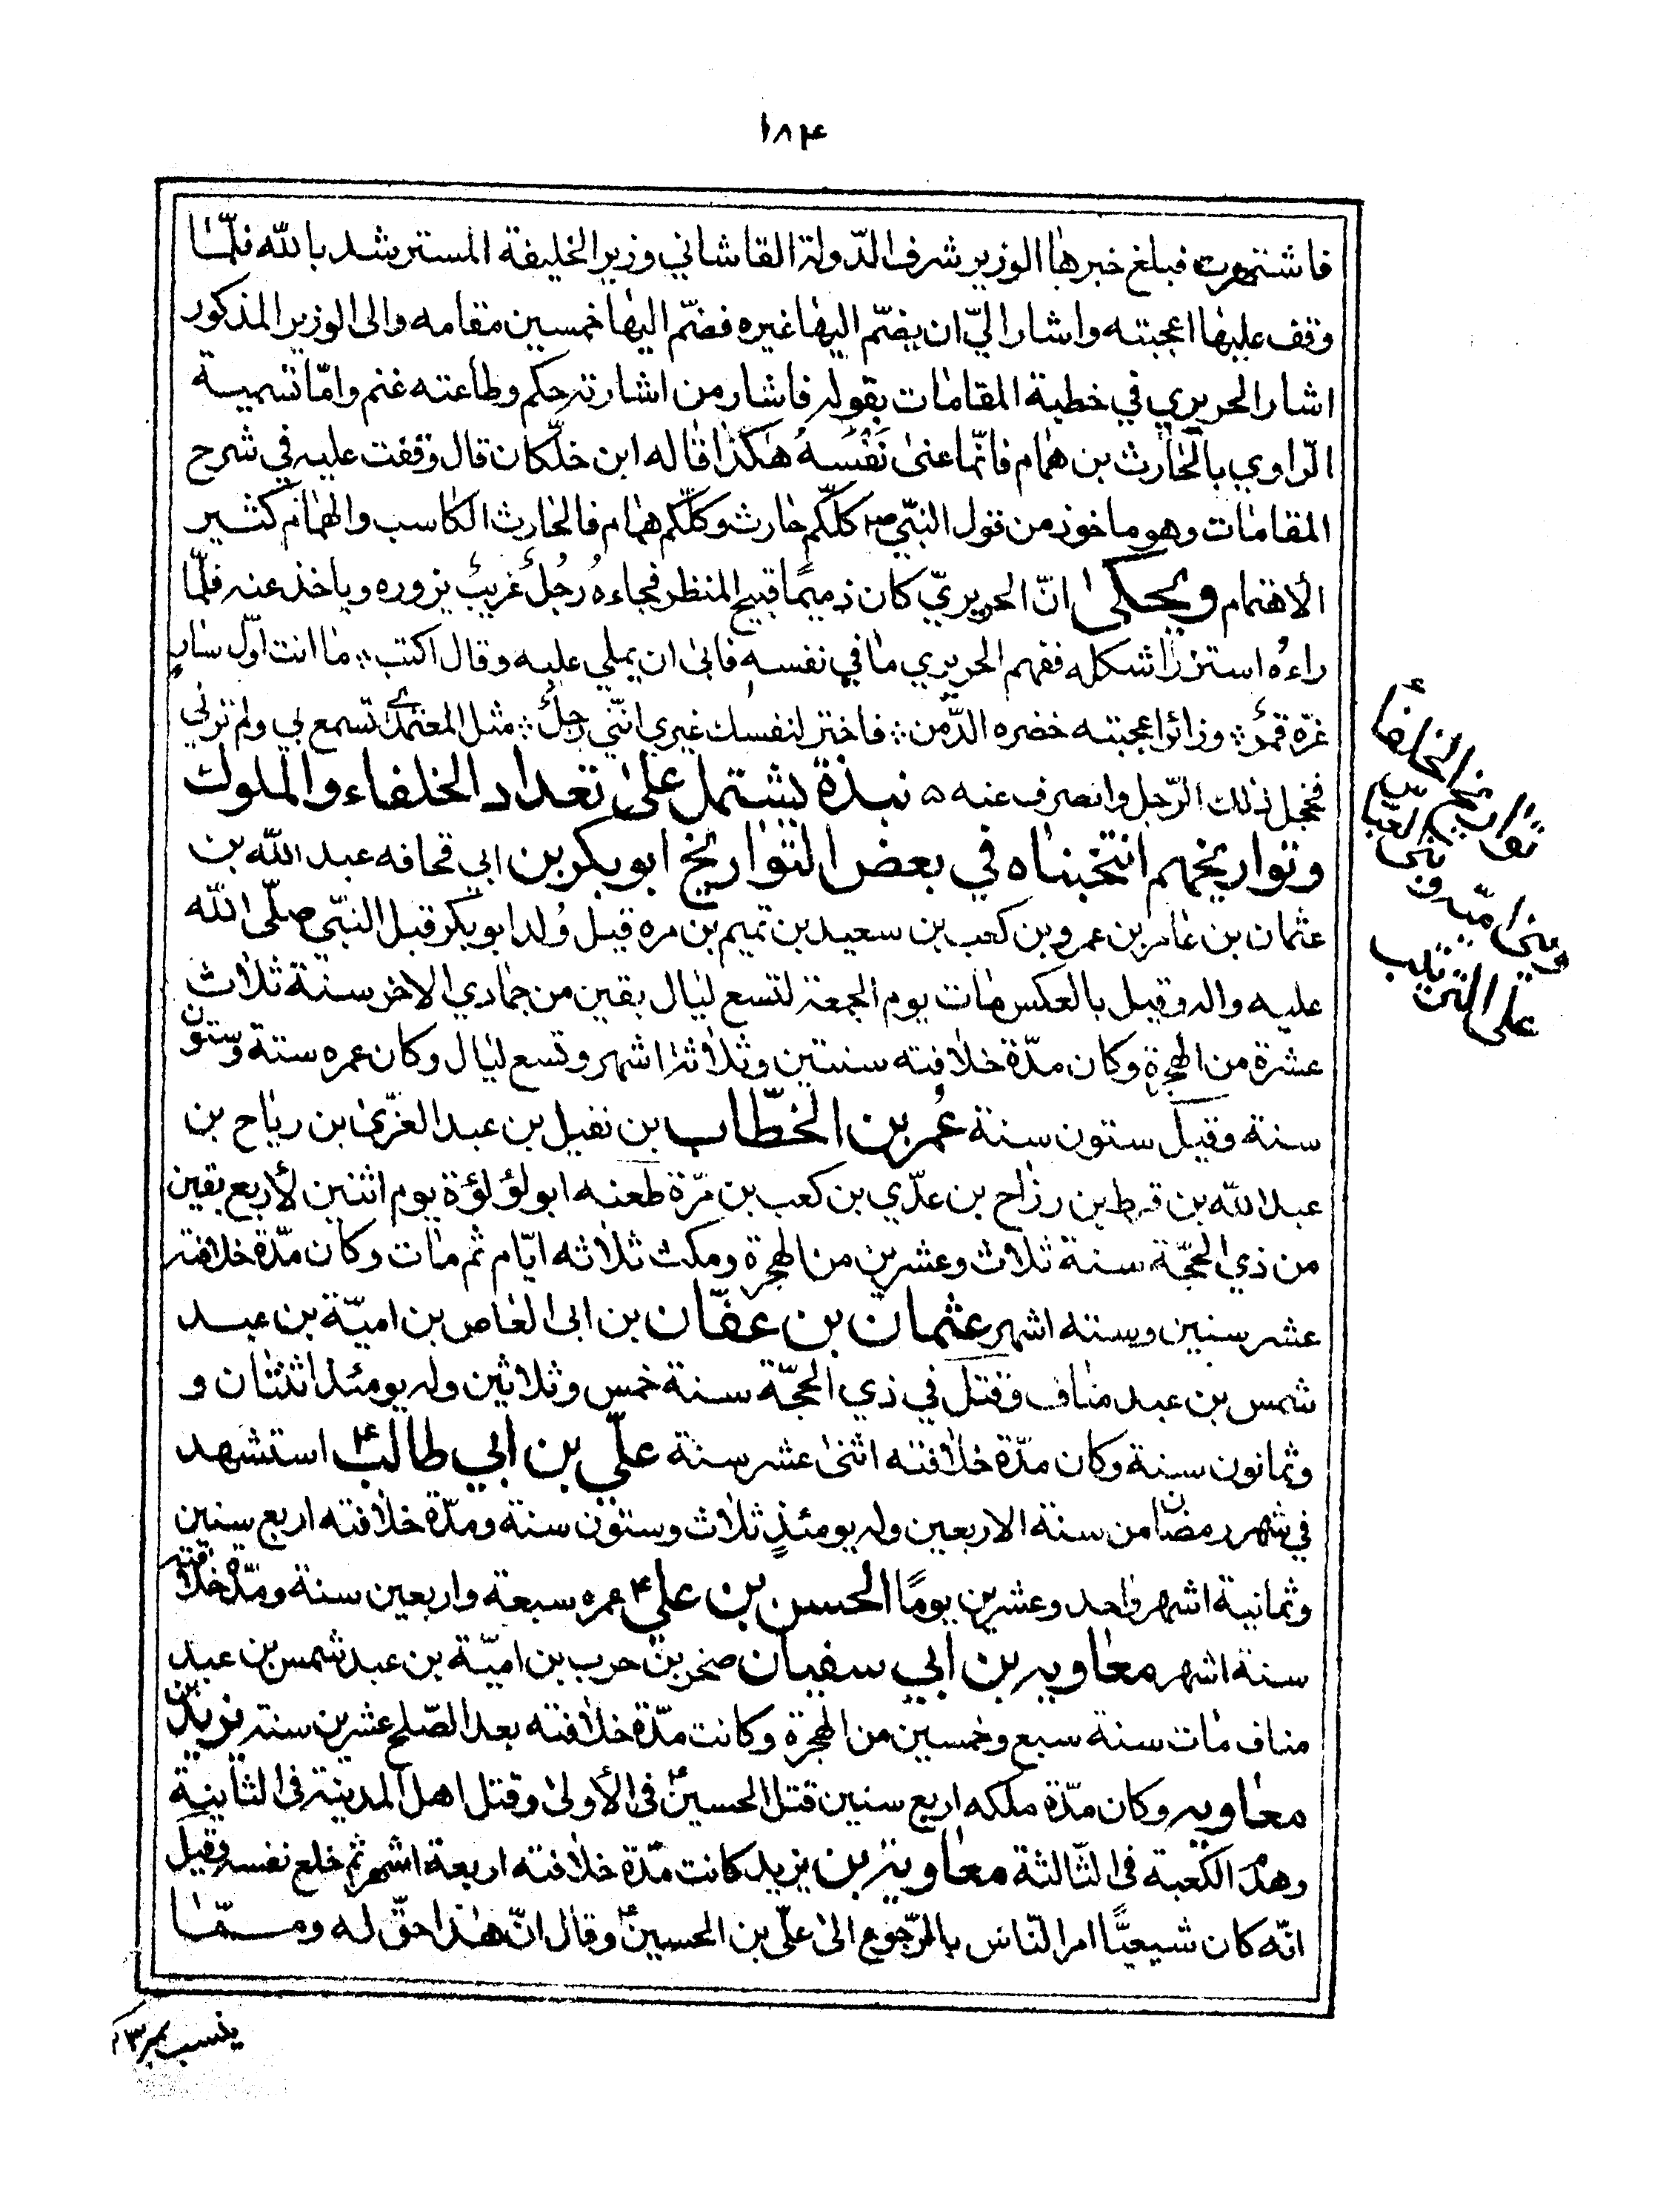 ۱۸۴
فاشتهرت فبلغ خبرها الوزير شرف الدّولة القاشاني وزير الخليفة المسترشد بالله فلمّا
وقف عليها اعجبته واشار اليّ ان يضمّ اليها غيره فضمّ اليها خمسين مقامه والى الوزير المذكور
اشار الحريري في خطبة المقامات بقوله فاشار من اشارته حكم وطاعته غنم وامّا تسمية
الرّاوي بالحارث بن همام فانّما عنى نَفْسَهُ هكذا قاله ابن خلّكان قال وقفت عليه في شرح
المقامات وهو ماخوذ من قول النبّي ص كلّكم حارث وكلّكم همام فالحارث الكاسب والهمام كثير
الأهتمام ويحكى انّ الحريريّ كان ذميمًا قبيح المنظر فجاءهُ رجُلٌ غريبٌ يزوره وياخذ عنه فلمّا
راءهُ استزرا شكله ففهم الحريري ما في نفسه فابى ان يملي عليه وقال اكتب ؞ ما انت اوّل سار
غرّه قمرٌ ؞ وزائرا عجبته خضره الدّمن ؞ فاختر لنفسك غيري انّني رجلٌ ؞ مثل المعتمدي تسمع بي ولم ترني
فخجل ذلك الرّجل وانصرف عنه ه نبذة يشتمل على تعداد الخلفاء والملوك
وتواريخهم انتخبناه في بعض التواريخ ابو بكر بن ابي قحافه عبد اللّه بن
عثمان بن عامر بن عمرو بن كعب بن سعيد بن تميم بن مره قيل وُلد ابو بكر قبل النبّي صلّى اللّه
عليه واله وقيل بالعكس مات يوم الجمعة لتسع ليال بقين من جمادي الاخر سنة ثلاث
عشرة من الهجرة وكان مدّة خلافته سنتين وثلاثة اشهر وتسع ليال وكان عمره ستة وستون
سنة وقيل ستون سنة عُمر بن الخطّاب بن نفيل بن عبد العزّى بن رياح بن
عبد اللّه بن قرط بن رزاح بن عدّي بن كعب بن مرّة طعنه ابو لؤلؤة يوم اثنين لأربع بقين
من ذي الحجّة سنة ثلاث وعشرين من الهجرة ومكث ثلاثه ايّام ثم مات وكان مدّة خلافته
عشر سنين وسته اشهر عثمان بن عفّان بن ابى العاص بن اميّة بن عبد
شمس بن عبد مناف وقتل في ذي الحجّة سنة خمس وثلاثين وله يومئذ اثنتان و
وثمانون سنة وكان مدّة خلافته اثنى عشر سنة علّي بن ابي طالب ع استشهد
في شهر رمضان من سنة الاربعين وله يومئذٍ ثلاث وستون سنة ومدّة خلافته اربع سنين
وثمانية اشهر واحد وعشرين يومًا الحسن بن علي ع عمره سبعة واربعين سنة ومدّة خلافته
ستة اشهر معاويه بن ابي سفيان صخر بن حرب بن اميّة بن عبد شمس بن عبد
مناف مات سنة سبع وخمسين من الهجرة وكانت مدّة خلافته بعد الصّلح عشرين سنة يزيد بن
معاويه وكان مدّة ملكه اربع سنين قتل الحسين ع فى الأولى وقتل اهل المدينة فى الثانية
وهدّ الكعبة فى الثّالثة معاوية بن يزيد كانت مدّة خلافته اربعة اشهر ثم خلع نفسه وقيل
انّه كان شيعيًّا امر النّاس بالرّجوع الى علّي بن الحسين ع وقال انّ هذا حقّ له وممّا
تواريخ الخلفأ
من بنى العبّاس
وبنى اميّه و
على الترتيب
ينسب